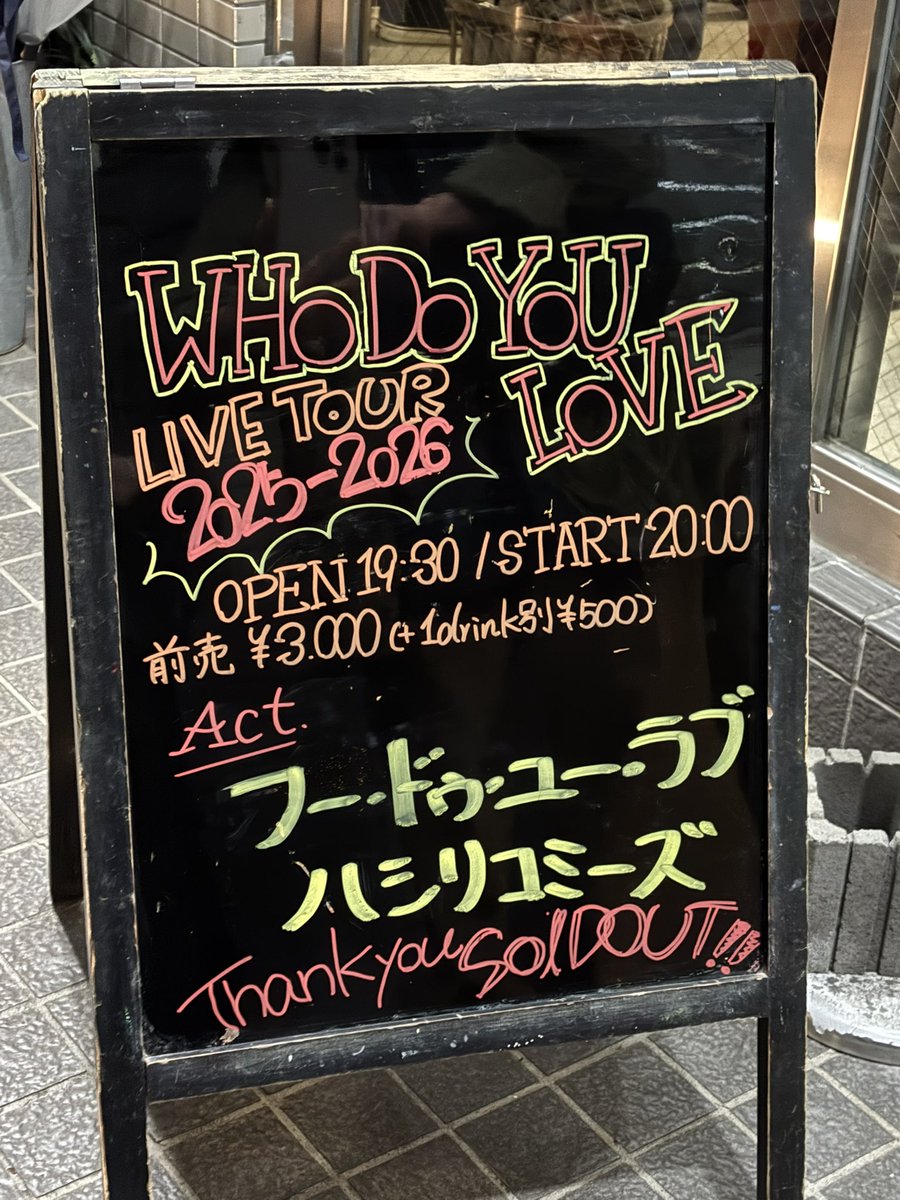 WHO DO YOU
LOVE
LIVE TOUR
2025-2026
OPEN 19:30 / START 20:00
前売 ¥3.000 (+1drink別¥500)
Act.
フー・ドゥ・ユー・ラブ
ハシリコミーズ
Thank you SOLDOUT!!